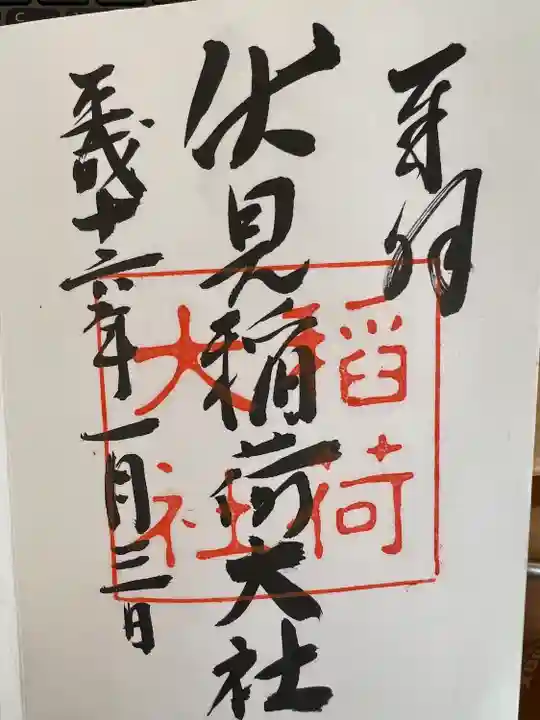 奉拝
伏見稲荷大社
平成十六年一月三日
稲荷
大社